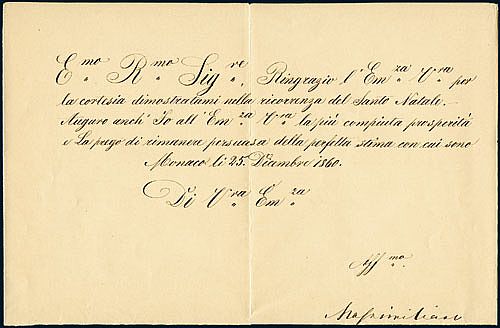 E.mo R.mo Sig.re Ringrazio l'Em.za V.ra per
la cortesia dimostratami nella ricorrenza del Santo Natale.
Auguro anch'Io all'Em.za V.ra la più compiuta prosperità
e La prego di rimanere persuasa della perfetta stima con cui sono
Monaco li 25. Dicembre 1860.
Di V.ra Em.za
Aff.mo
Massimiliano